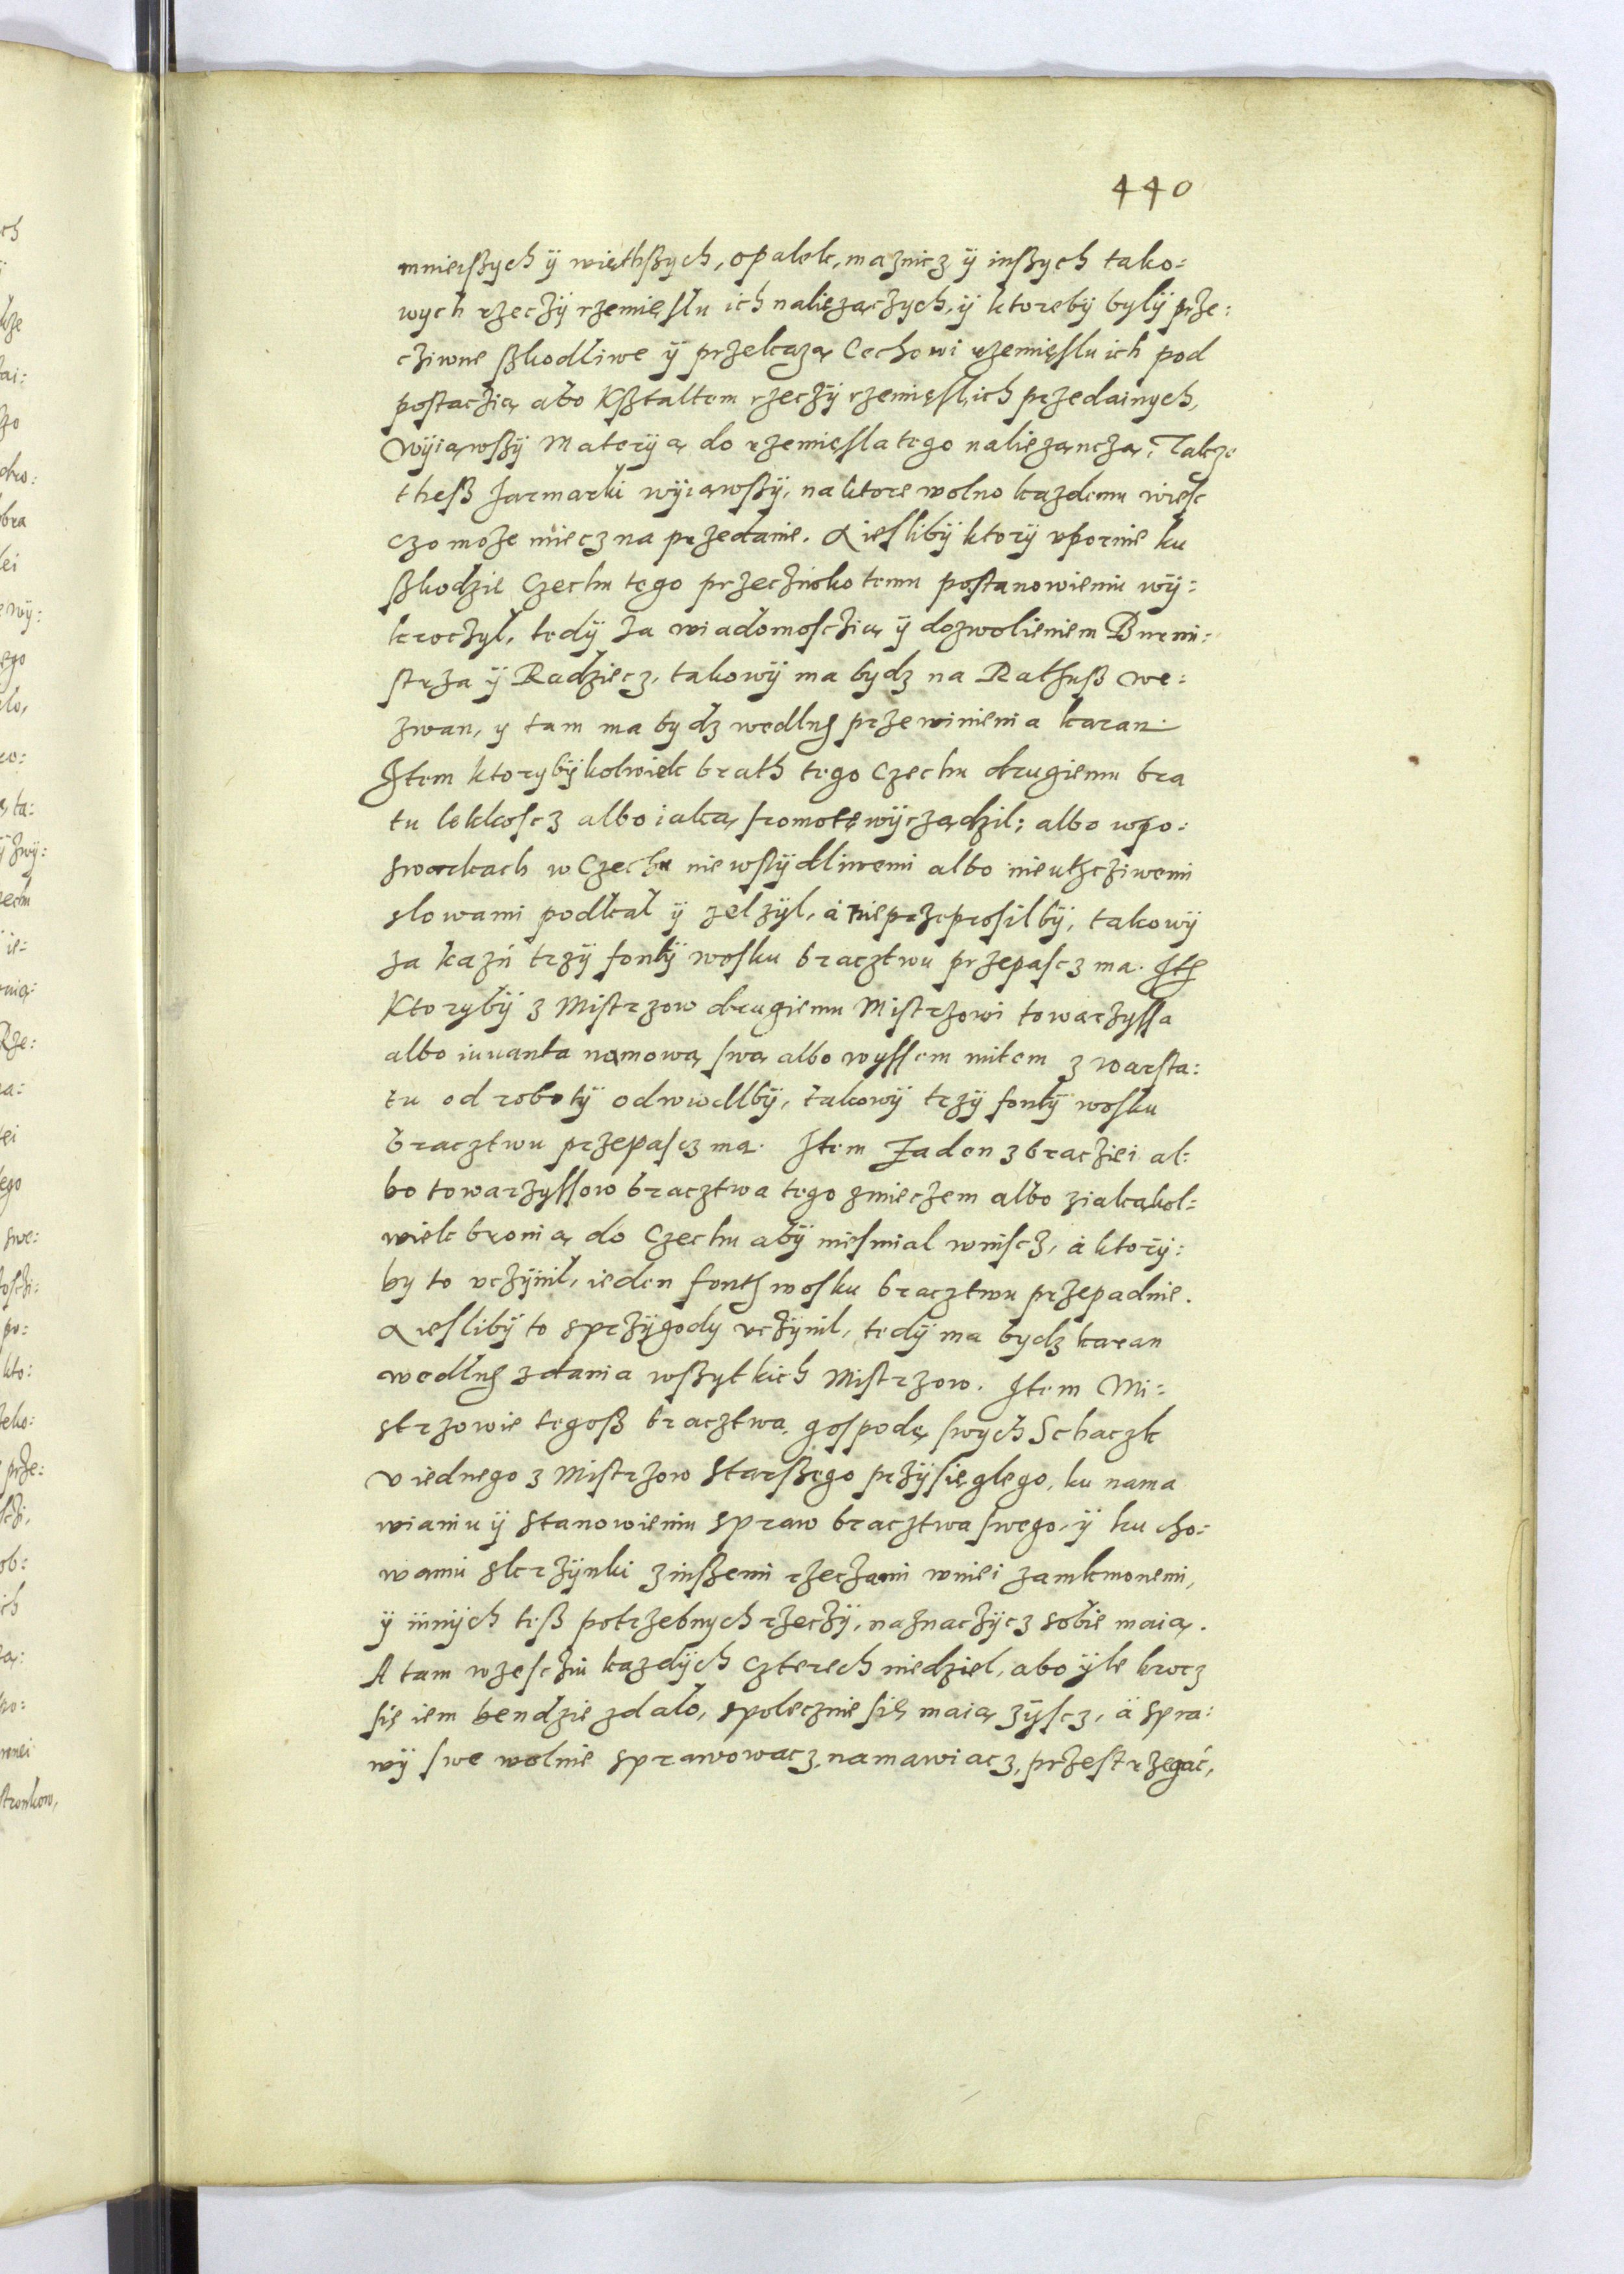 440
mnieiszych ÿ więthszych, opalek, maznicz ÿ inszych tako:
wych rzeczÿ rzemięslu ich nalieżączych, ÿ ktorebÿ bylÿ prze:
cziwne szkodliwe ÿ przekazą Cechowi rzemięslu ich pod
postaczią abo Kształtem rzeczÿ rzemięslich przedainych,
Wÿiąwszÿ Materÿą do rzemięsla tego należąncżą, Takze
thesz Jarmarki wÿiąwszÿ, na ktore wolno kazdemu wiesc
czo może miecz na przedanie. A iesliby ktorÿ vpornie ku
szkodzie Czechu tego przecziwko temu postanowieniu wÿ:
kroczÿl, tedÿ za wiadomosczią ÿ dozwolieniem Burmi:
strza ÿ Radziecz, takowÿ ma bydz na Rathusz we:
zwan, y tam ma bydz wedlug przewinienia karan.
Item ktorybÿkolwiek brath tego Czechu drugiemu bra
tu lekkoscz albo iaką sromotę wÿcządził; albo w po:
swarkach w Czechu niewstÿdliwemi albo nieutzcziwemi
slowami podkał ÿ zelzÿl, á nie przeprosilbÿ, takowÿ
za kaźń trzÿ fontÿ wosku bracztwu przepascz ma. Ith
Ktorybÿ z Mistrzow drugiemu Mistrzowi towarzyssa
albo iuuanta namową swą albo wyssem mitem z warsta:
tu od robotÿ odwiodlbÿ, takowÿ trzÿ fontÿ wosku
bracztwu przepascz ma. Item Żaden z bracziei al:
bo towarzyssow bracztwa tego zmieczem albo ziakąkol:
wiek bronią do Czechu abÿ niesmial wniscz, á ktorÿ:
by to vczÿnił, ieden fonth wosku bracztwu przepadnie.
A ieslibÿ to sprzÿgody vczÿnil, tedÿ ma bydz karan
wedlug zdania wszytkich Mistrzow. Item Mi:
strzowie tegosz bracztwa, gospodę swych Schaczk
v iednego z Mistrzow Starszego przÿsięglego, ku nama
wianiu ÿ stanowieniu spraw bracztwa swego, ÿ ku cho:
waniu skrzÿnki zinszemi rzeczami wniei zamknionemi,
ÿ innÿch tesz potrzebnych rzeczÿ, naznaczÿcz sobie maią.
A tam wzesczin kazdÿch czterech niedziel, abo ÿle krocz
się iem bendzie zdało, spolecznie się maią zÿscz, ä spra:
wÿ swe wolnie sprawowacz, namawiacz, przestrzegać,